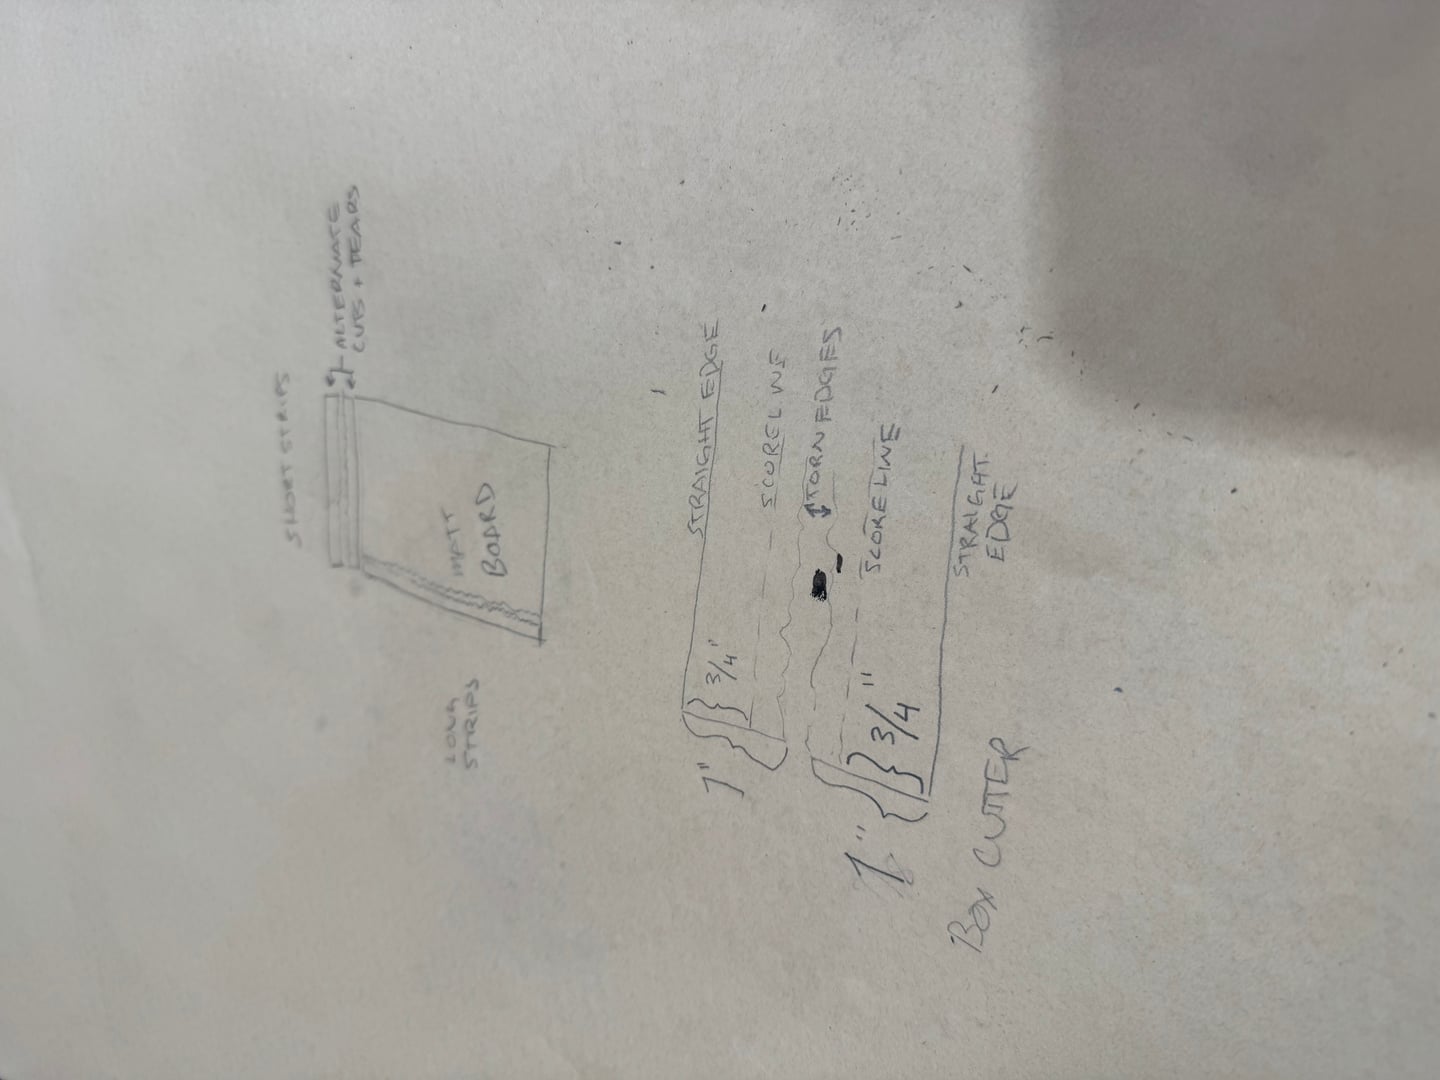 SHORT STRIPS
ALTERNATE
CUTS + TEARS
LONG
STRIPS
MATT
BOARD
1" 3/4" STRAIGHT EDGE
SCORELINE
TORN EDGES
1" 3/4" SCORELINE
STRAIGHT
EDGE
BOX CUTTER